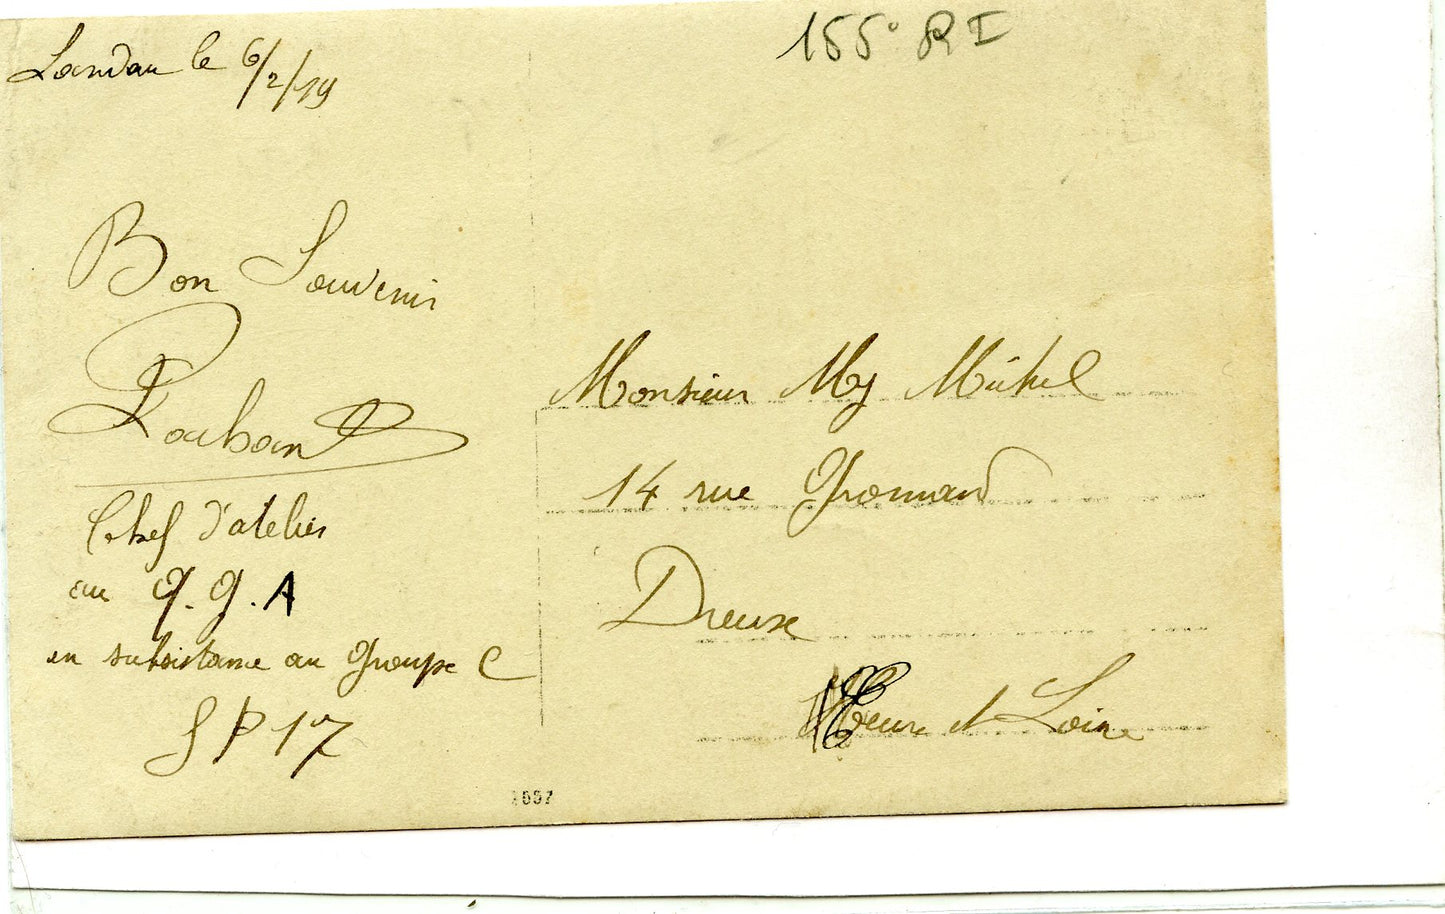 Landau le 6/2/19
155° RI
Bon Souvenir
Chef d'atelier
au G.G.A
en subsistance au Groupe C
SP 17
Monsieur My Michel
14 rue
Dreux
Eure et Loire